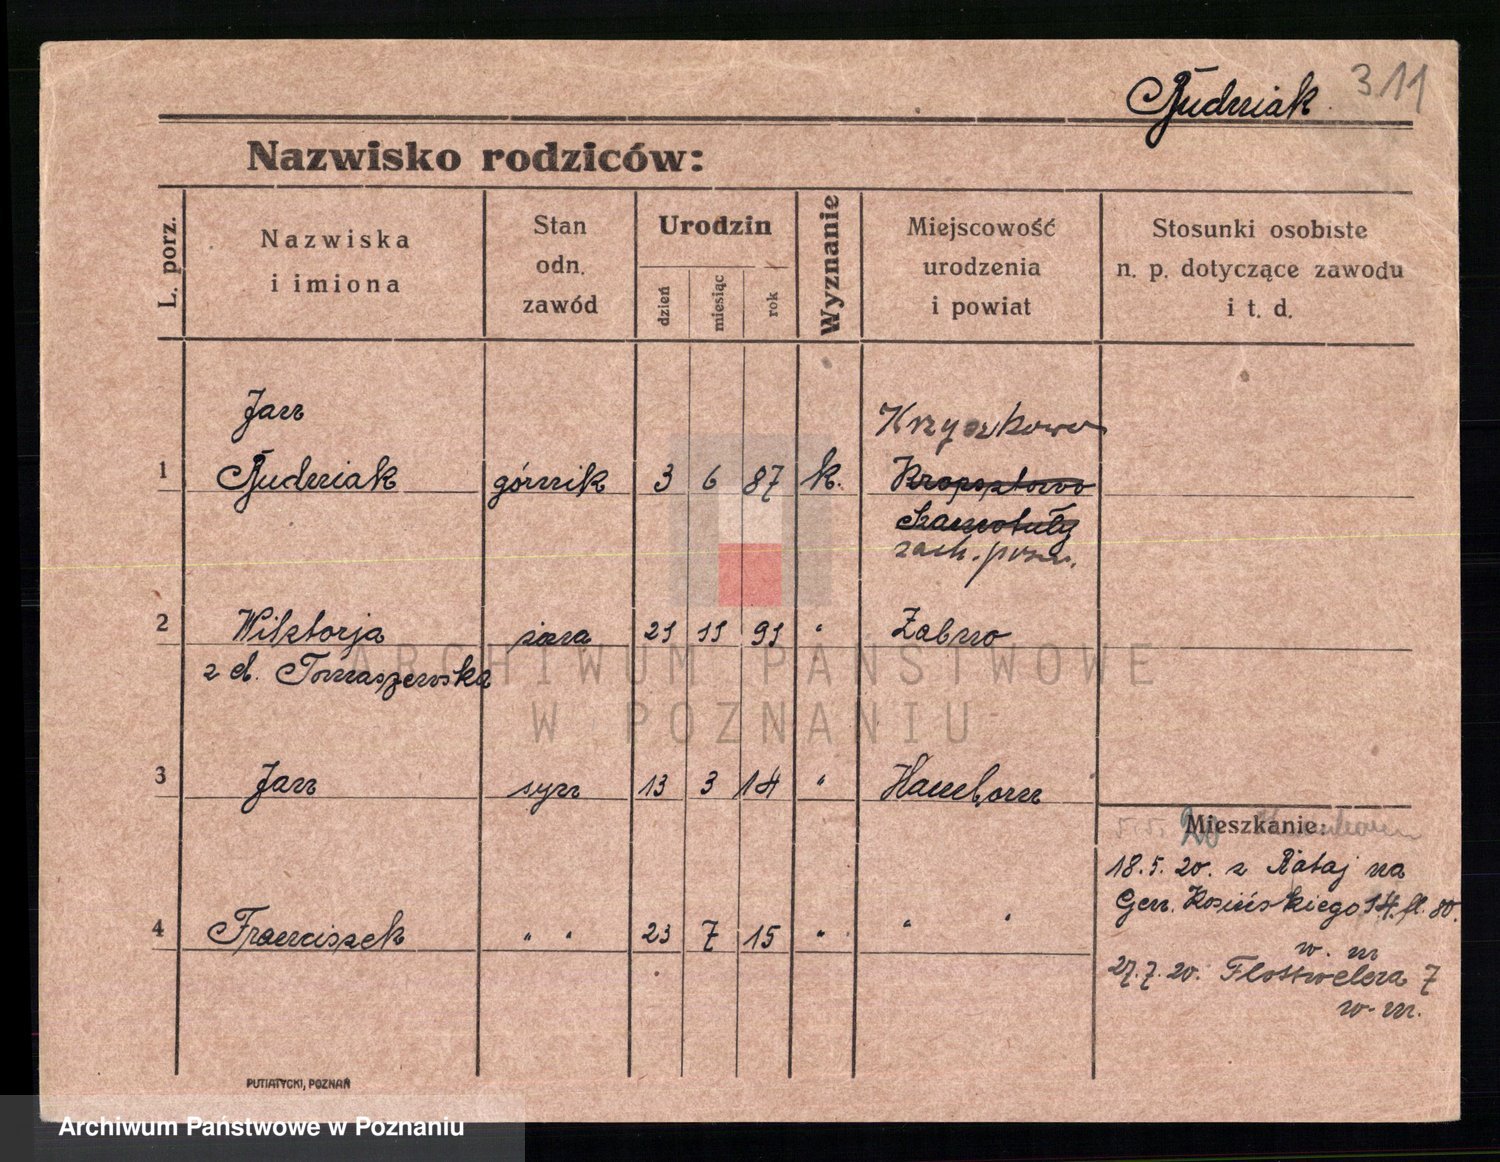 Rudniak 311
Nazwisko rodziców:
L. porz.
Nazwiska
i imiona
Stan
odn.
zawód
Urodzin
dzień
miesiąc
rok
Wyznanie
Miejscowość
urodzenia
i powiat
Stosunki osobiste
n. p. dotyczące zawodu
i t. d.
Jan
Krzyszkowo
1 Rudniak górnik 3 6 87 k.
Szamotuły
zach. pozn.
2 Wiktorja żona 21 11 91 " Zabno
z d. Tomaszewska
3 Jan syn 13 3 14 " Hamborn
Mieszkanie:
20
18.5.20. z Rataj na
Gen. Kosińskiego 14. fl. 80.
4 Franciszek " " 23 7 15 " " "
w. m
27.7.20. Flottwelera 7
w. m.
PUTIATYCKI, POZNAŃ
ARCHIWUM PAŃSTWOWE
W POZNANIU
Archiwum Państwowe w Poznaniu